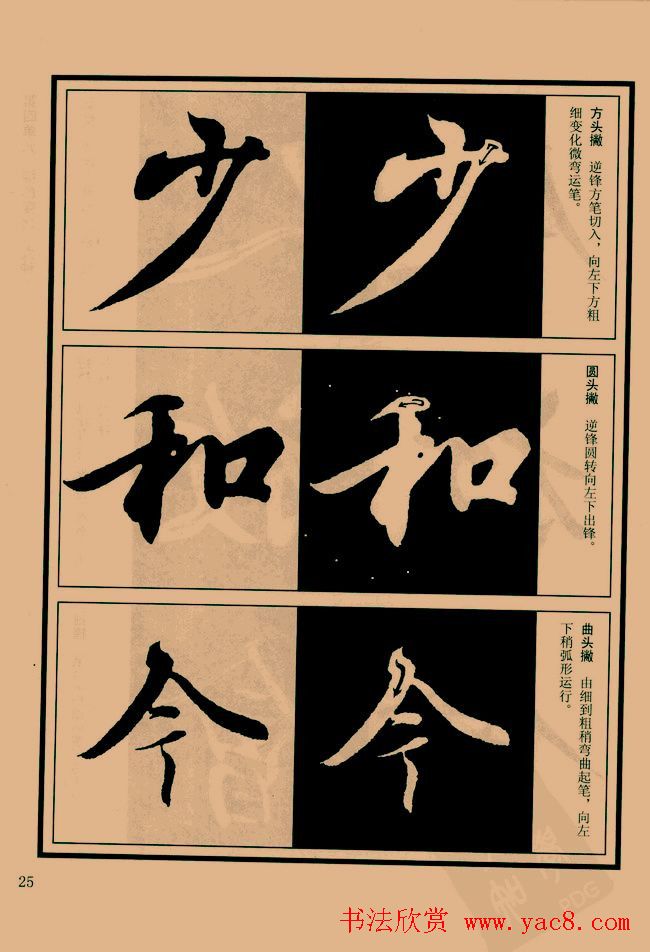 方头撇 逆锋方笔切入，向左下方粗
细变化微弯运笔。
少 少
圆头撇 逆锋圆转向左下出锋。
和 和
曲头撇 由细到粗稍弯曲起笔，向左
下稍弧形运行。
今 今
25
书法欣赏 www.yac8.com